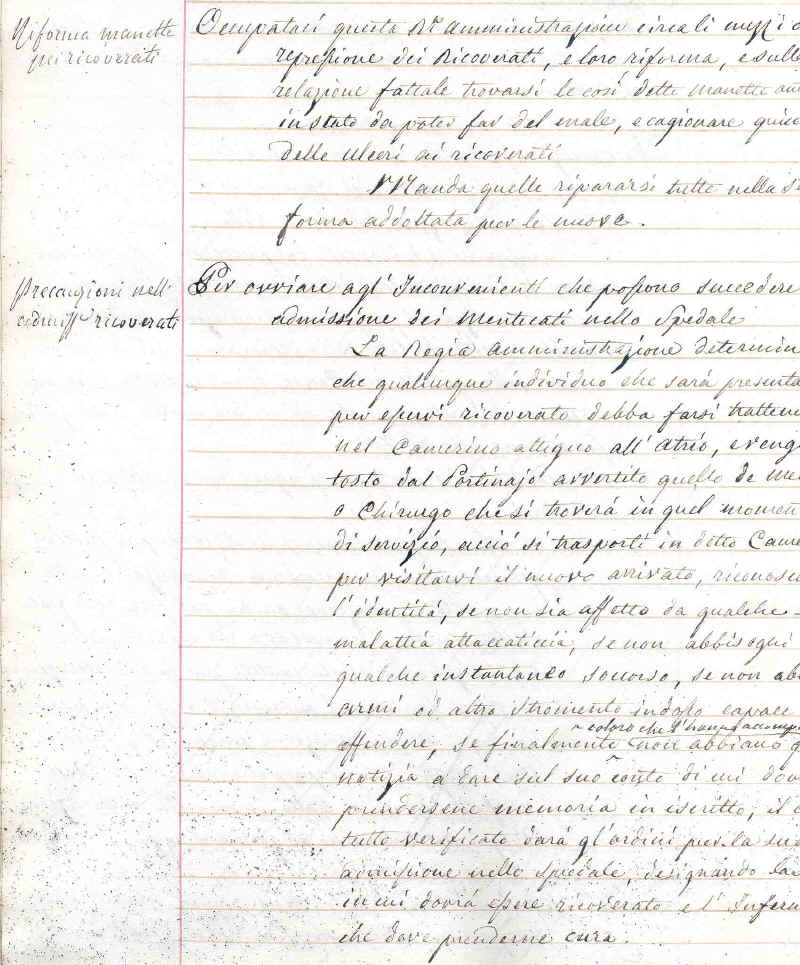 Riforma manette
pei ricoverati
Occupatasi questa Rª Amministrazione circa li mezzi
repressione dei Ricoverati, e loro riforma, e sulla
relazione fattale trovarsi le così dette manette
in stato da poter far del male, e cagionare
delle ulceri ai ricoverati
Manda quelle ripararsi tutte nella
forma addottata per le nuove.
Precauzioni nell'
admissᵉ ricoverati
Per ovviare agl'Inconvenienti che possono succedere
admissione dei Mentecati nello Spedale
La Regia Amministrazione determin
che qualunque individuo che sarà presenta
per esservi ricoverato debba farsi trattene
nel Camerino attiguo all'Atrio, e veng
tosto dal Portinajo avvertito quello de Me
o Chirurgo che si troverà in quel momen
di servizio, acciò si trasporti in detto Came
per visitarvi il nuovo arrivato, riconosc
l'identità, se non sia affetto da qualche
malattia attaccaticcia, se non abbisogni
qualche instantaneo soccorso, se non ab
armi od altro stromento indosso capace
coloro che l'hanno accomp
offendere, se finalmente non abbiano q
notizia a dare sul suo conto di cui dov
prendersene memoria in iscritto, il
tutto verificato darà gl'ordini per la su
admissione nello spedale, designando la
in cui dovrà essere ricoverato e l'Inferm
che deve prenderne cura.